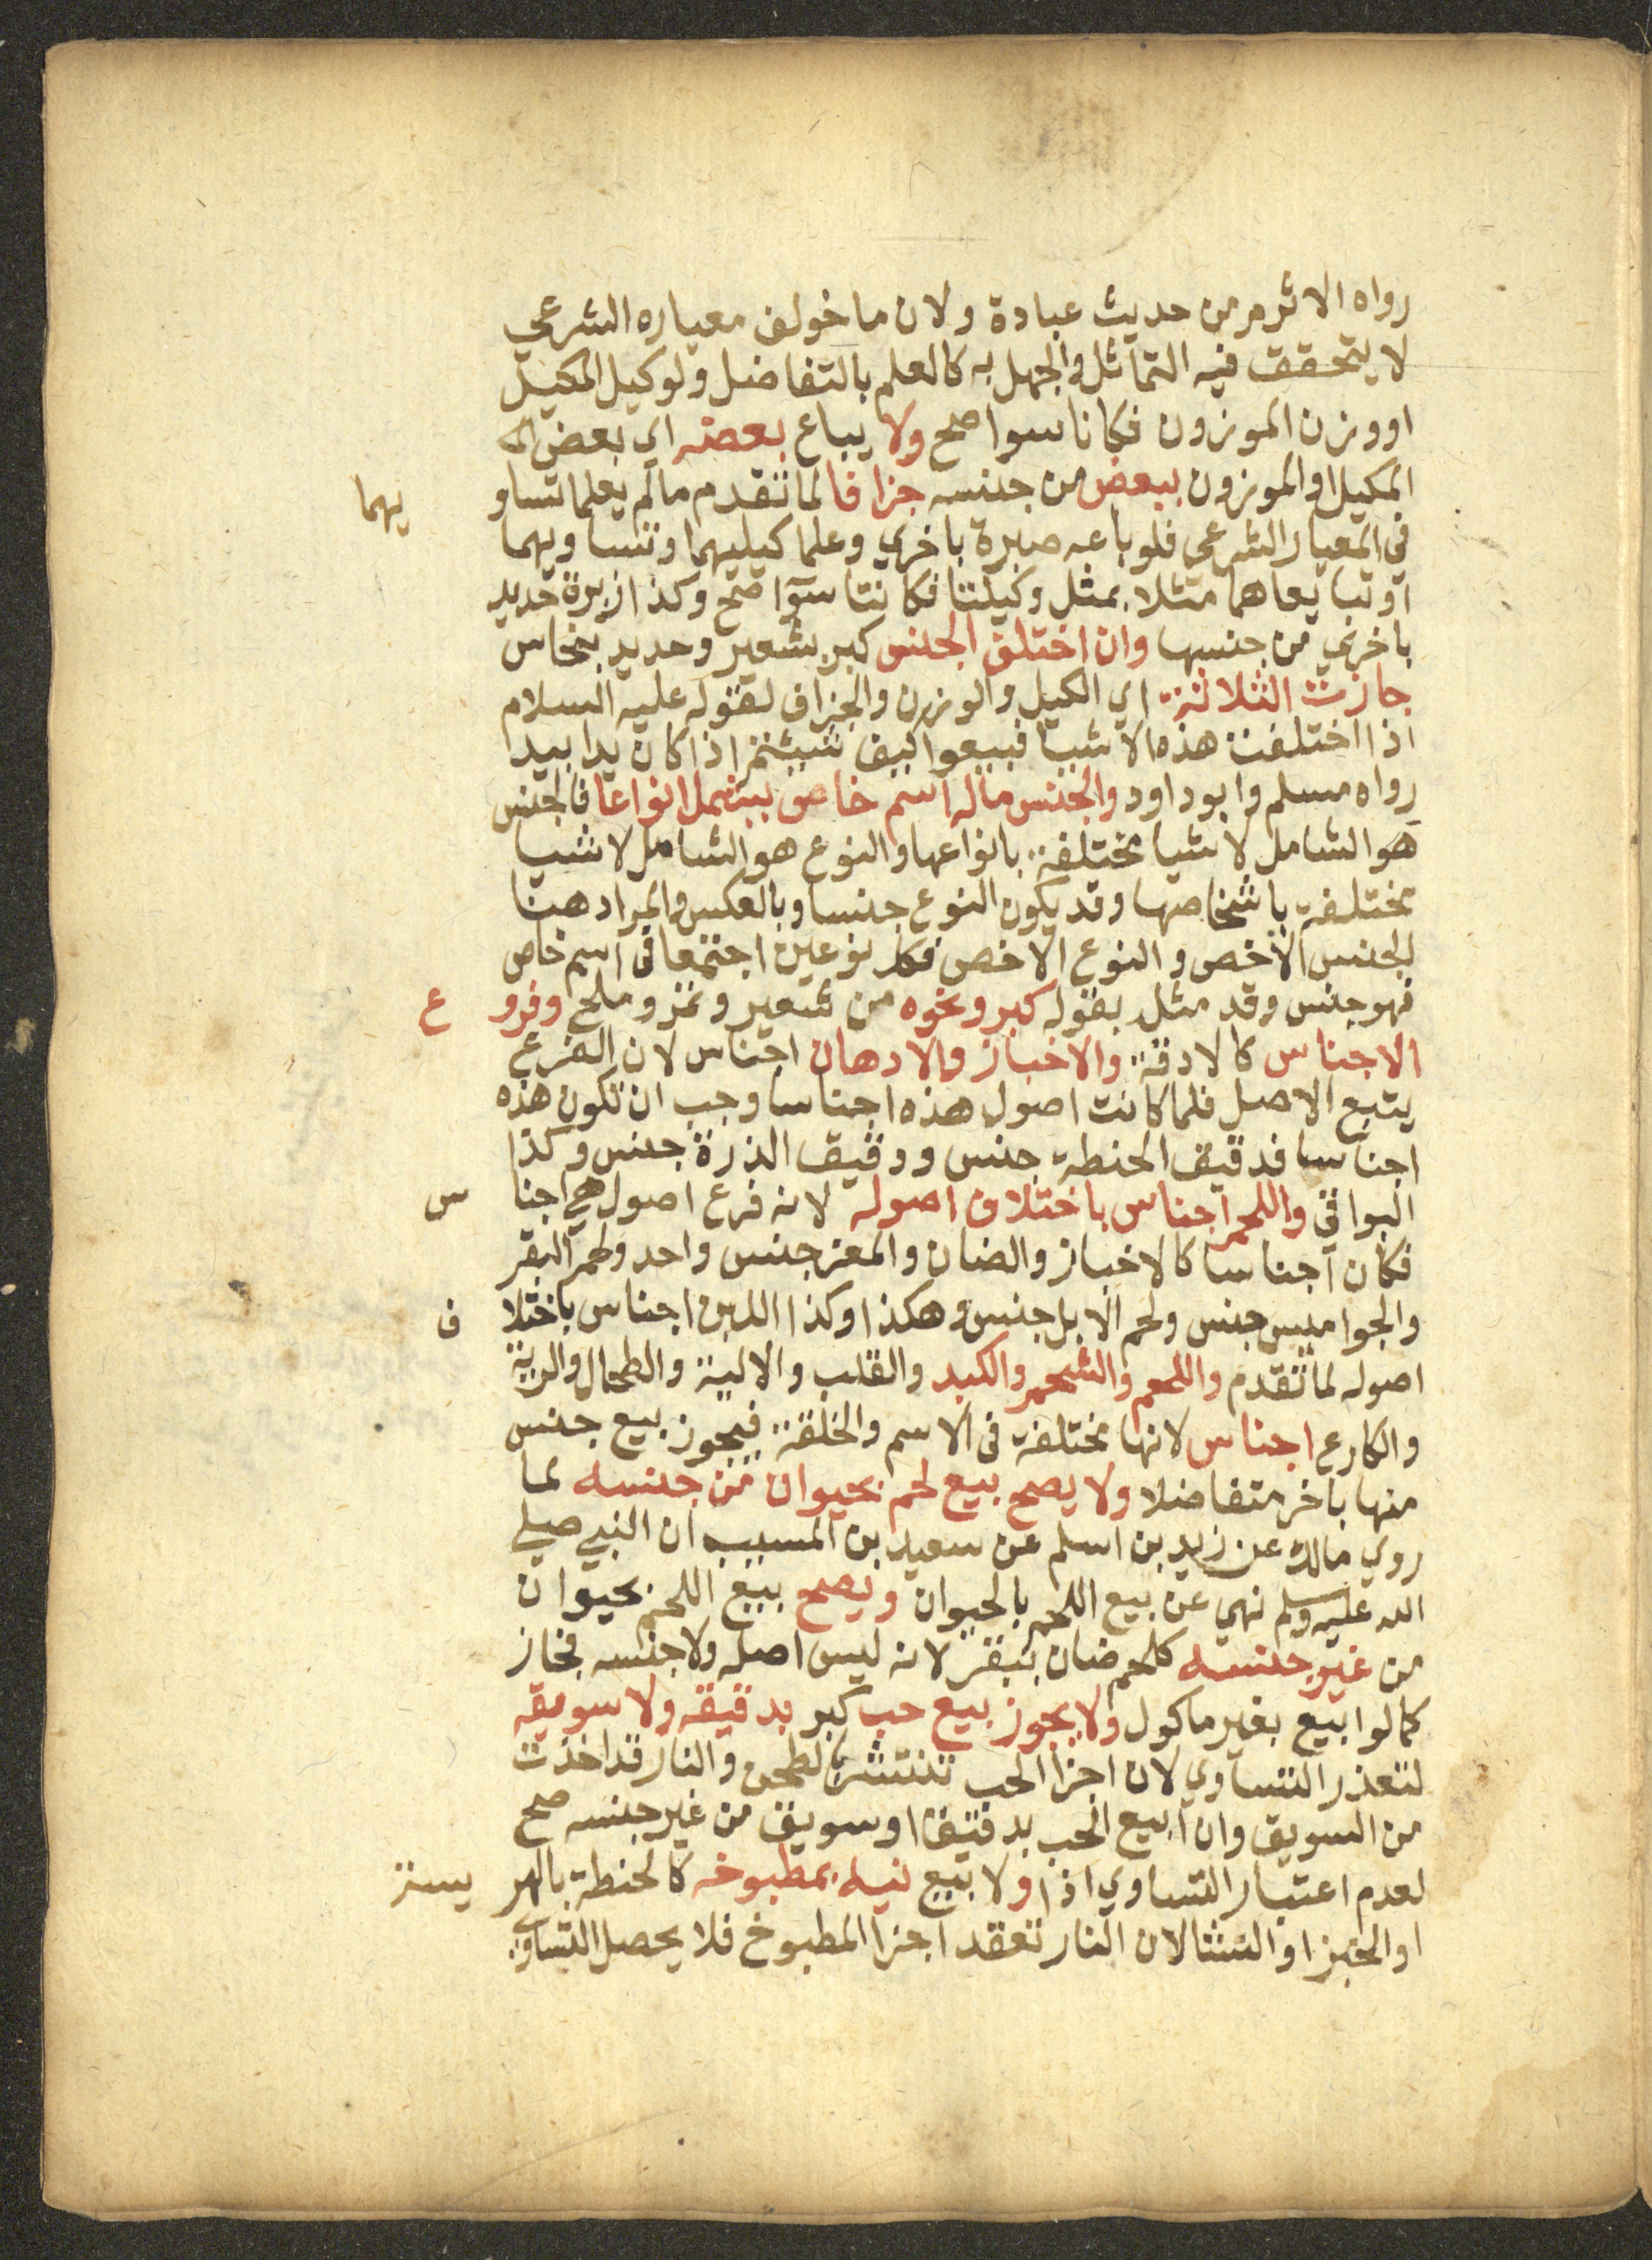 رواه الاثرم من حديث عبادة ولان ما خولف معياره الشرعي
لا يتحقق فيه التماثل والجهل به كالعلم بالتفاضل ولو كيل المكيل
او وزن الموزون فكانا سوا صح ولا يباع بعضه اي بعض الم
المكيل او الموزون ببعض من جنسه جزافا لما تقدم ما لم يعلما تساو يهما
في المعيار الشرعي فلو باعه صبرة باخري وعلما كيليهما وتساويهما
او تبايعاهما مثلا بمثل وكيلتا فكانتا سوآ صح وكذا زبرة حديد
باخري من جنسها وان اختلف الجنس كبر بشعير وحديد بنحاس
جازت الثلاثة اي الكيل والوزن والجزاف لقوله عليه السلام
اذا اختلفت هذه الاشيا فبيعوا كيف شيئتم اذا كان يدا بيد
رواه مسلم وابو داود والجنس ماله اسم خاص يشمل انواعا فالجنس
هو الشامل لاشيا مختلفة بانواعها والنوع هو الشامل لاشيا
مختلفة باشخاصها وقد يكون النوع جنسا وبالعكس والمراد هنا
الجنس الاخص والنوع الاخص فكل نوعين اجتمعا في اسم خاص
فهو جنس وقد مثل بقوله كبر ونحوه من شعير وتمر وملح وفرو ع
الاجناس كالادقة والاخباز والادهان اجناس لان الفرع
يتبع الاصل فلما كانت اصول هذه اجناسا وجب ان تكون هذه
اجناسا فدقيق الحنطة جنس ودقيق الذرة جنس وكذا
البواقي واللحم اجناس باختلاف اصوله لانه فرع اصول هي اجنا س
فكان اجناسا كالاخباز والضان والمعز جنس واحد ولحم البقر
والجواميس جنس ولحم الابل جنس وهكذا وكذا اللبن اجناس باختلا ف
اصوله لما تقدم واللحم والشحم والكبد والقلب والالية والطحال والرية
والكارع اجناس لانها مختلفة في الاسم والخلقة فيجوز بيع جنس
منها باخر متفاضلا ولا يصح بيع لحم بحيوان من جنسه لما
روي مالك عن زيد بن اسلم عن سعيد بن المسيب ان النبي صلي
الله عليه وسلم نهي عن بيع اللحم بالحيوان ويصح بيع اللحم بحيوان
من غير جنسه كلحم ضان ببقر لانه ليس اصله ولا جنسه فجاز
كما لو ابيع بغير ماكول ولا يجوز بيع حب كبر بدقيقه ولا سويقه
لتعذر التساوي لان اجزا الحب تنتشر بالطحن والنار قد اخذت
من السويق وان ابيع الحب بدقيق او سويق من غير جنسه صح
لعدم اعتبار التساوي اذا ولا بيع نيه بمطبوخه كالحنطة بالهر يسة
او الخبز او النشا لان النار تعقد اجزا المطبوخ فلا يحصل التساوي